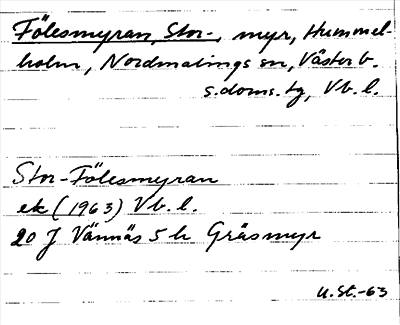 Fölesmyran, Stor-, myr, Hummel-
holm, Nordmalings sn, Västerb.
s. doms. tg, Vb. l.
Stor-Fölesmyran
ek (1963) Vb. l.
20 J Vännäs 5 h Gräsmyr
U.St.-63